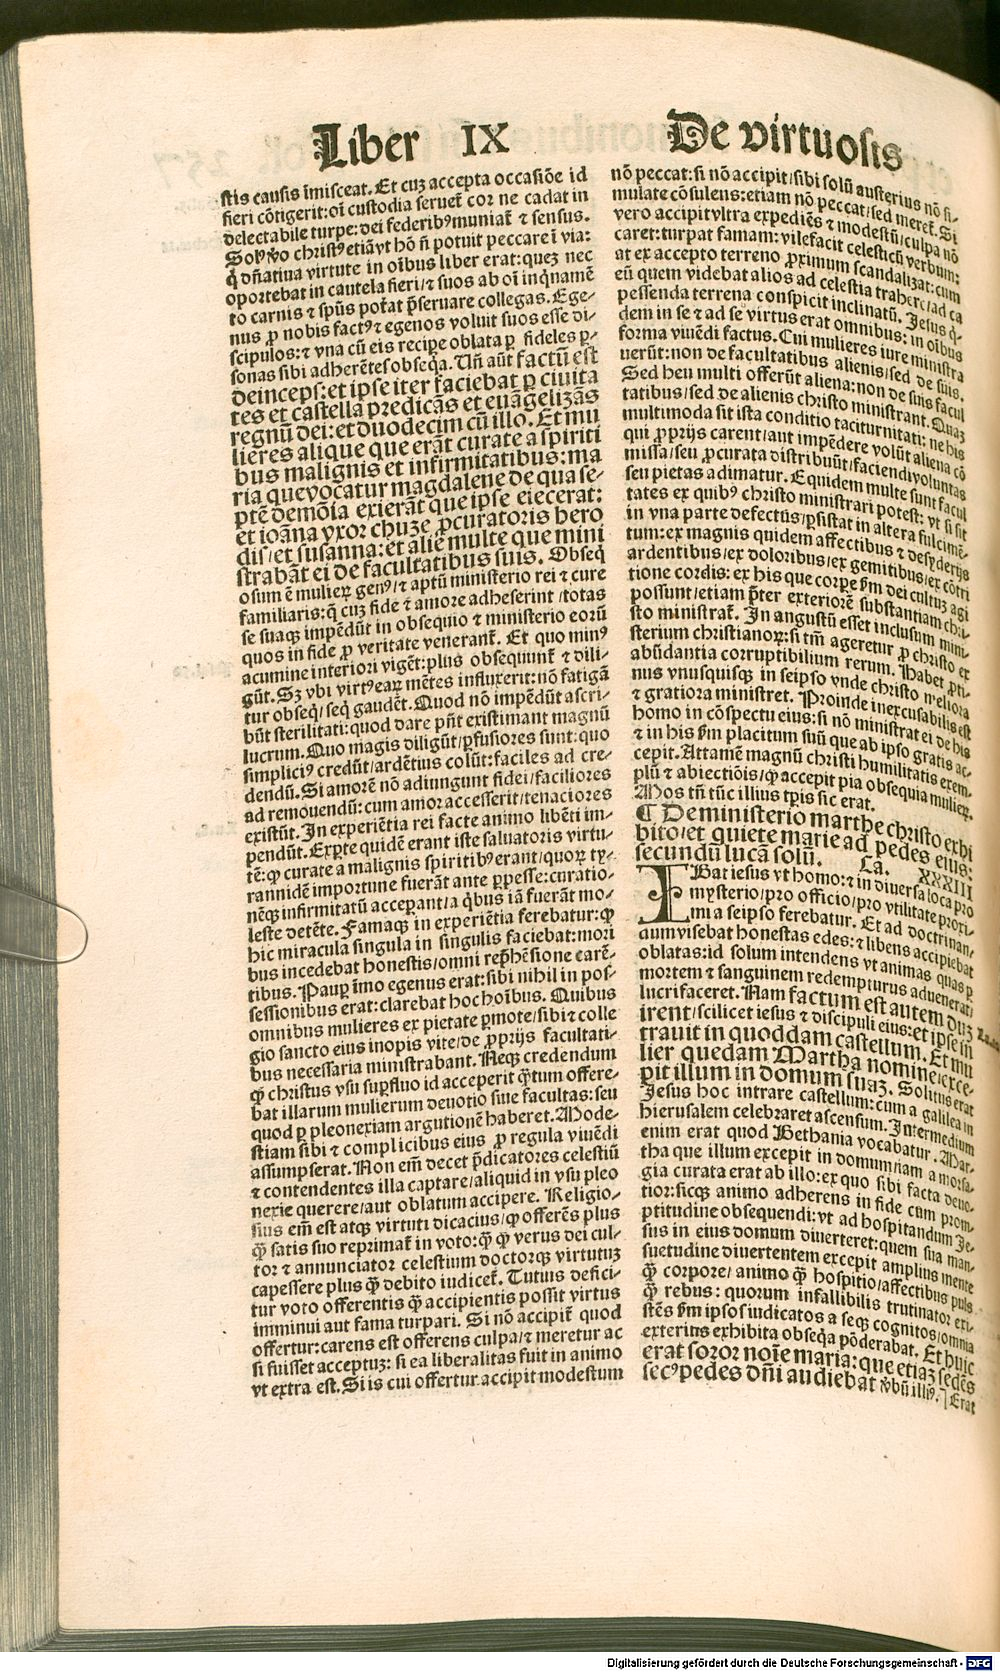 Liber IX De virtuosis
stis causis īmisceat. Et cuȝ accepta occasiōe id
fieri cōtigerit: oī custodia seruet̄ cor ne cadat in
delectabile turpe: dei federibꝰ muniat̄ ⁊ sensus.
Solꝰ v̄o christꝰ etiā vt hō n̄ potuit peccare ī via:
q̇ dn̄atiua virtute in oībus liber erat: queȝ nec
oportebat in cautela fieri/⁊ suos ab oī inq̇namē
to carnis ⁊ sp̄us pot̄at p̄seruare collegas. Ege-
nus ꝓ nobis factꝰ ⁊ egenos voluit suos esse di-
scipulos: ⁊ vna cū eis recipe oblata ꝑ fideles ꝑ-
sonas sibi adherētes obseq̇a. Un̄ aūt factū est
deinceps: et ipse iter faciebat ꝑ ciuita
tes et castella predicās et euāgelizās
regnū dei: et duodecim cū illo. Et mu
lieres alique que erāt curate a spiriti
bus malignis et infirmitatibus: ma
ria que vocatur magdalene de qua se-
ptē demōia exierāt que ipse eiecerat:
et ioāna vxor chuze ꝓcuratoris hero
dis/et susanna: et alie multe que mini
strabāt ei de facultatibus suis. Obseq̇
osum ē mulieꝝ genꝰ/⁊ aptū ministerio rei ⁊ cure
familiaris: q̇ cuȝ fide ⁊ amore adheserint/totas
se suaqȝ impēdūt in obsequio ⁊ ministerio eorū
quos in fide ꝓ veritate venerant̄. Et quo minꝰ
acumine interiori vigēt: plus obsequunt̄ ⁊ dili-
gūt. Sȝ vbi virtꝰ eaꝝ mētes influxerit: nō fatigā
tur obseq̇/seq̇ gaudēt. Quod nō impēdūt ascri-
būt sterilitati: quod dare pn̄t existimant magnū
lucrum. Quo magis diligūt/ꝓfusiores sunt: quo
simpliciꝰ credūt/ardētius colūt: faciles ad cre-
dendū. Si amorē nō adiungunt fidei/faciliores
ad remouendū: cum amor accesserit/tenaciores
existūt. In experiētia rei facte animo libēti im-
pendūt. Exꝑte quidē erant iste saluatoris virtu-
tē: ꝙ curate a malignis spiritibꝰ erant/quoꝝ ty-
rannidē importune fuerāt ante ꝑpesse: curatio-
nēqȝ infirmitatū acceperāt/a q̇bus iā fuerāt mo-
leste detēte. Famaqȝ in experiētia ferebatur: ꝙ
hic miracula singula in singulis faciebat: mori
bus incedebat honestis/omni rep̄hēsione carē-
tibus. Pauꝑ īmo egenus erat: sibi nihil in pos-
sessionibus erat: clarebat hoc hoībus. Quibus
omnibus mulieres ex pietate ꝑmote/sibi ⁊ colle
gio sancto eius inopis vite/de ꝓprijs facultati-
bus necessaria ministrabant. Neqȝ credendum
ꝙ christus vsu suꝑfluo id acceperit q̄tum offere-
bat illarum mulierum deuotio siue facultas: seu
quod ꝑ pleonexiam argutionē haberet. Mode-
stiam sibi ⁊ complicibus eius ꝓ regula viuēdi
assumpserat. Non em̄ decet p̄dicatores celestiū
⁊ contendentes illa captare/aliquid in vsu pleo
nexie querere/aut oblatum accipere. Religio-
sius em̄ est atqȝ virtuti dicacius/ꝙ offerēs plus
q̄ꝫ satis suo reprimat̄ in voto: q̄ꝫ ꝙ verus dei cul-
tor ⁊ annunciator celestium doctorqȝ virtutuȝ
capessere plus q̄ꝫ debito iudicet̄. Tutius defici-
tur voto offerentis q̄ꝫ accipientis possit virtus
imminui aut fama turpari. Si nō accipit̄ quod
offertur: carens est offerens culpa/⁊ meretur ac
si fuisset acceptuȝ: si ea liberalitas fuit in animo
vt extra est. Si is cui offertur accipit modestum
nō peccat: si nō accipit/sibi solū austerius nō si-
mulate cōsulens: etiam nō peccat/sed meret̄. Si
vero accipit vltra expediēs ⁊ modestū/culpa nō
caret: turpat famam: vilefacit celesticū verbum:
at ex accepto terreno ꝓximum scandalizat: cum
eū quem videbat alios ad celestia trahere/ad ca
pessenda terrena conspicit inclinatū. Jesus q̇-
dem in se ⁊ ad se virtus erat omnibus: in oībus
forma viuēdi factus. Cui mulieres iure ministra
uerūt: non de facultatibus alienis/sed de suis.
Sed heu multi offerūt aliena: non de suis facul
tatibus/sed de alienis christo ministrant. Quaȝ
multimoda sit ista conditio taciturnitati: ne his
qui ꝓprijs carent/aut impēdere volūt aliena cō
missa/seu ꝓcurata distribuūt/faciendi voluntas
seu pietas adimatur. Equidem multe sunt facul
tates ex quibꝰ christo ministrari potest: vt si sit
in vna parte defectus/ꝓsistat in altera fulcimē-
tum: ex magnis quidem affectibus ⁊ desyderijs
ardentibus/ex doloribus/ex gemitibus/ex cōtri
tione cordis: ex his que corꝑe ẜm dei cultuȝ agi
possunt/etiam p̄ter exteriorē substantiam chri-
sto ministrat̄. In angustū esset inclusum mini-
sterium christianoꝝ: si tm̄ ageretur ꝓ christo ex
abūdantia corruptibilium rerum. Habet ꝓti-
nus vnusquisqȝ in seipso vnde christo meliora
⁊ gratiora ministret. Proinde inexcusabilis est
homo in cōspectu eius: si nō ministrat ei de his
⁊ in his ẜm placitum suū que ab ipso gratis ac-
cepit. Attamē magnū christi humilitatis exem-
plū ⁊ abiectiōis/ꝙ accepit pia obsequia mulieꝝ.
Mos tn̄ tūc illius tp̄is sic erat.
¶ De ministerio marthe christo exhi
bito/et quiete marie ad pedes eius:
secundū lucā solū. Ca. XXXIII
IBat iesus vt homo: ⁊ in diuersa loca pro
mysterio/pro officio/pro vtilitate proxi-
mi a seipso ferebatur. Et ad doctrinan-
dum visebat honestas edes: ⁊ libens accipiebat
oblatas: id solum intendens vt animas quas ꝑ
mortem ⁊ sanguinem redempturus aduenerat/
lucrifaceret. Nam factum est autem duȝ
irent/scilicet iesus ⁊ discipuli eius: et ipse in
trauit in quoddam castellum. Et mu
lier quedam Martha nomine exce-
pit illum in domum suaȝ. Solitus erat
Jesus hoc intrare castellum: cum a galilea in
hierusalem celebraret ascensum. Intermedium
enim erat quod Bethania vocabatur. Mar-
tha que illum excepit in domum/iam a morsa-
gia curata erat ab illo: ex quo sibi facta deuo-
tior: sicqȝ animo adherens in fide cum prom-
ptitudine obsequendi: vt ad hospitandum Je-
sus in eius domum diuerteret: quem sua man-
suetudine diuertentem excepit amplius mente
q̄ꝫ corpore/ animo q̄ꝫ hospitio/affectibus plus
q̄ꝫ rebus: quorum infallibilis trutinator exi-
stēs ẜm ipsos iudicatos a seqȝ cognitos/omnia
exterius exhibita obseq̇a pōderabat. Et huic
erat soror noīe maria: que etiaȝ sedēs
secꝰ pedes dn̄i audiebat v̄bū illiꝰ. Erat
Digitalisierung gefördert durch die Deutsche Forschungsgemeinschaft - DFG